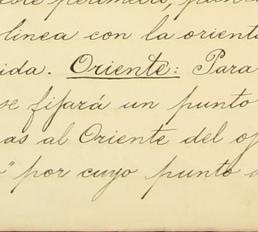 linea con la orienta
ida. Oriente: Para
se fijará un punto
as al Oriente del o
" por cuyo punto